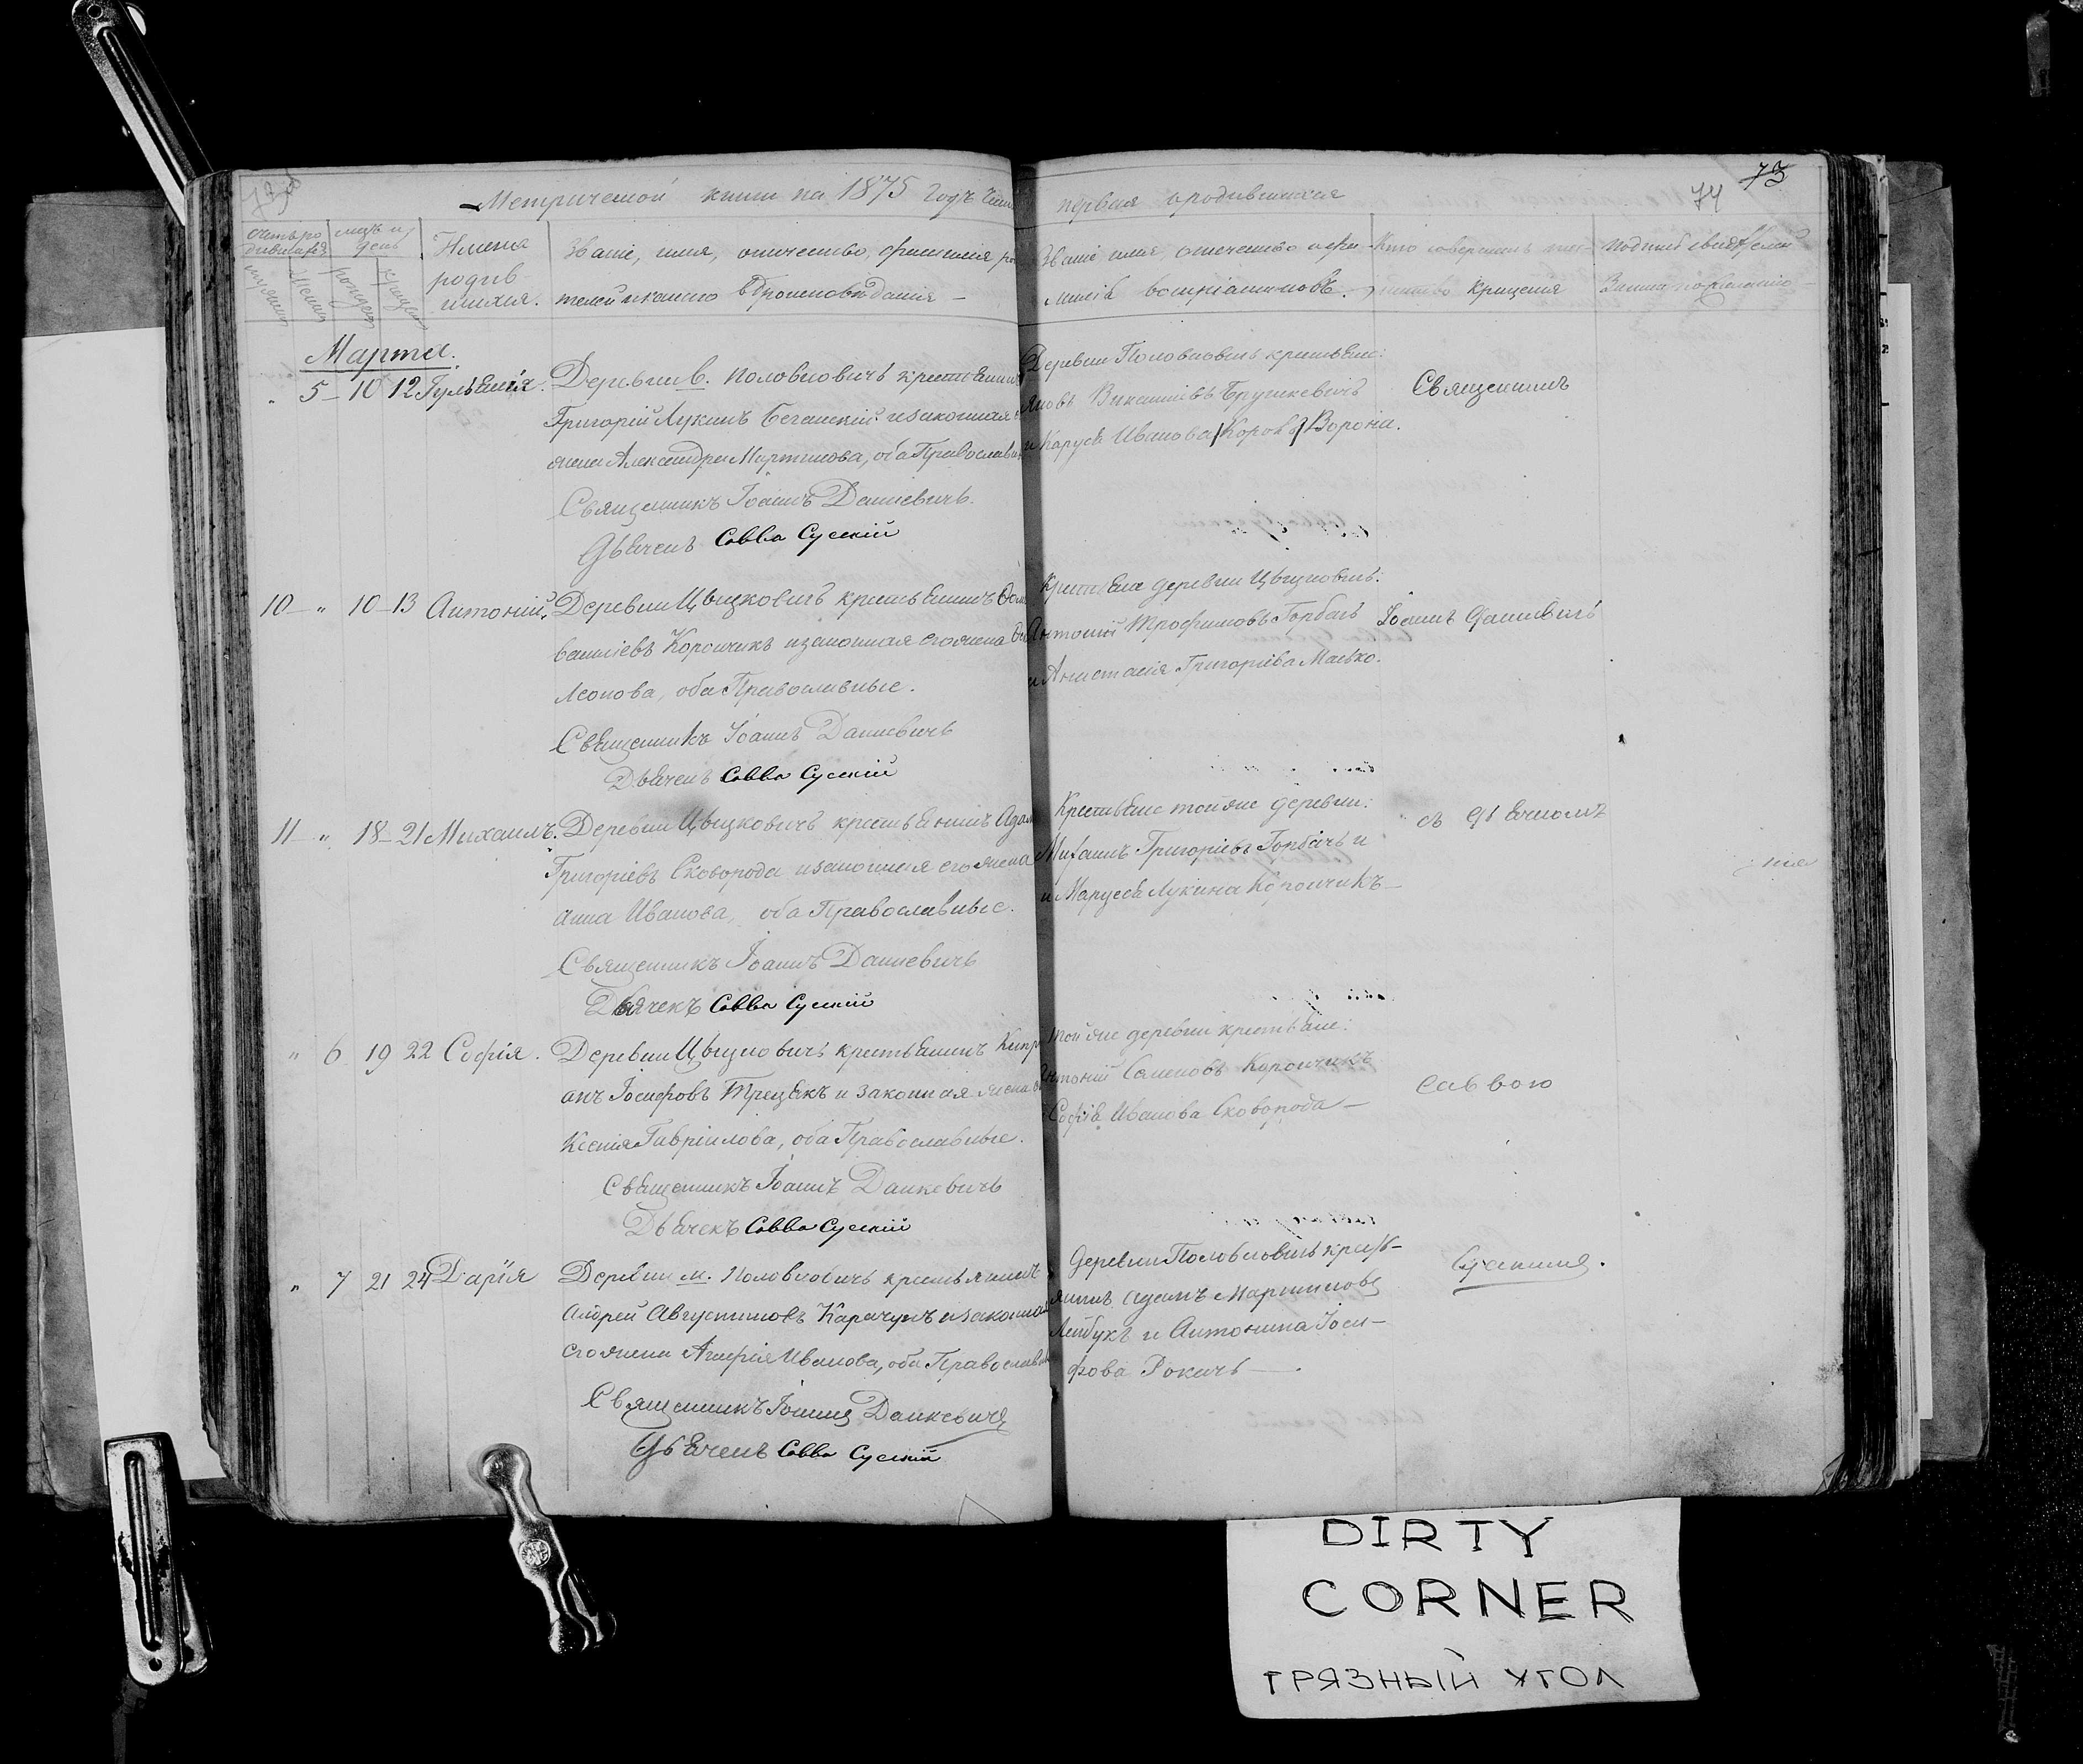 Метрической книги на 1875 годъ часть первая о родившихся
73
74
мѣць и день
Имена родив шихся.
Званіе, имя, отчество, фамилія ро
телей и какого вѣроисповѣданія —
Званіе имя, отчество и фа
милія воспріемниковъ.
Кто совершалъ таинство Крещенія
Марта.
„ 5 — 10 12 Гульянія. Деревни В. Половковичъ крестьянинъ
Григорій Лукинъ Беганскій и законная
жена Александра Мартинова, оба Православн
Священникъ Іоаннъ Данкевичъ.
Дьячекъ Савва Сускій
Деревни Половковичъ крестьяне:
и Каруся Иванова /Корова/ Ворона.
Священникъ
10 — „ 10 — 13 Антоній. Деревни Цвѣцковичъ крестьянинъ
василіевъ Корончикъ и законная его жена
Леонова, оба Православные.
Священникъ Іоаннъ Данкевичъ
Дьячекъ Савва Сускій
Крестьяне деревни Цвѣцковичъ:
Антоній Трофимовъ Горбачъ
и Анастасія Григоріева Масько.
Іоаннъ Данкевичъ
11 — „ 18 — 21 Михаилъ. Деревни Цвѣцковичъ крестьянинъ Адам
Григоріевъ Сковорода и законная его жена
Анна Иванова, оба Православные.
Священникъ Іоаннъ Данкевичъ
Дьячекъ Савва Сускій
Крестьяне той же деревни:
Михаилъ Григоріевъ Горбачъ и
и Маруся Лукина Корончикъ —
съ Дьячкомъ
„ 6 19 22 Софія. Деревни Цвѣцковичъ крестьянинъ Кипр
анъ Іосифовъ Трецякъ и законная жена
Ксенія Гавріилова, оба Православные.
Священникъ Іоаннъ Данкевичъ
Дьячекъ Савва Сускій
той же деревни крестьяне:
Антоній Семеновъ Корончикъ
Софія Иванова Сковорода —
Саввою
„ 7 21 24 Дарія Деревни м. Половковичъ крестьянинъ
Андрей Августиновъ Карачунъ и законная
его жена Агафія Иванова, оба Православн
Священникъ Іоаннъ Данкевичъ
Дьячекъ Савва Сускій
Деревни Половковичъ кресть-
янинъ Адамъ Мартиновъ
Лейбукъ и Антонина Іоси-
фова Рокачъ —
Сускимъ.
DIRTY
CORNER
ГРЯЗНЫЙ УГОЛ